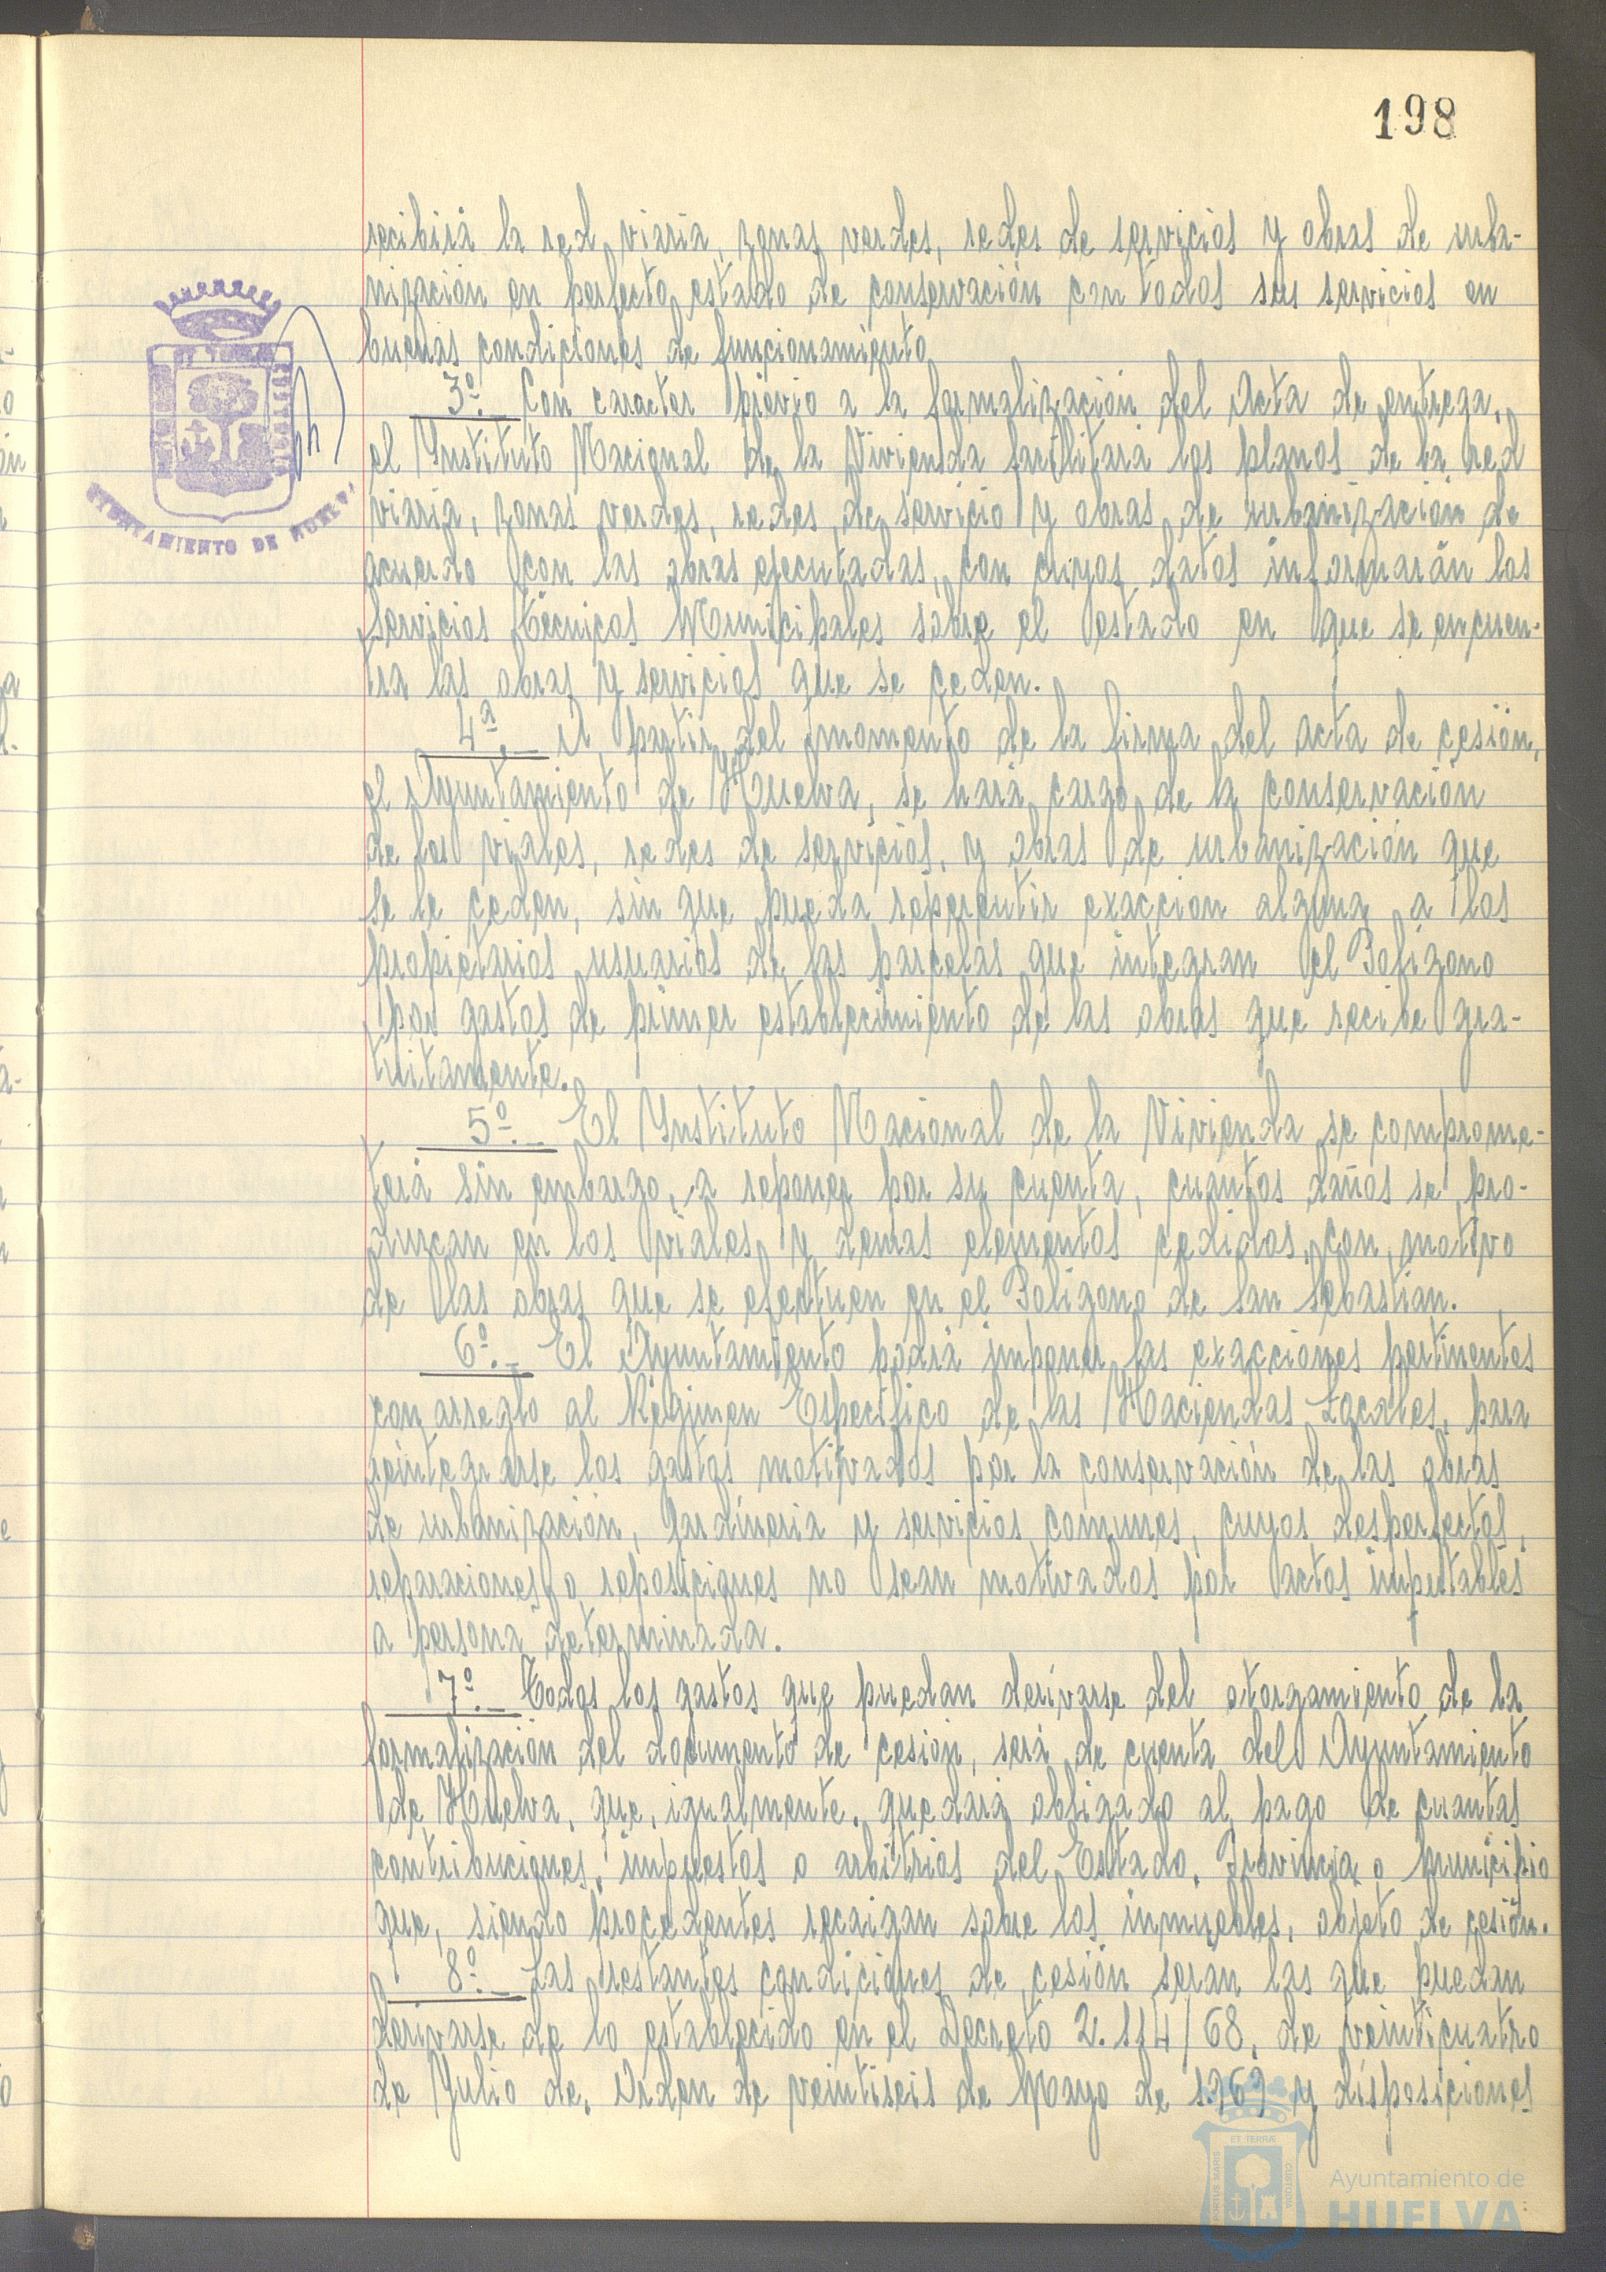 198
recibirá la red viaria, zonas verdes, redes de servicios y obras de urba-
nización en perfecto estado de conservación con todos sus servicios en
buenas condiciones de funcionamiento.
3º.- Con caracter previo a la formalización del Acta de entrega,
el Instituto Nacional de la Vivienda facilitará los planos de la red
viaria, zonas verdes, redes de servicio y obras de urbanización de
acuerdo con las obras ejecutadas, con cuyos datos informarán los
Servicios Técnicos Municipales sobre el estado en que se encuen-
tra las obras y servicios que se ceden.
4ª.- A partir del momento de la firma del acta de cesión,
el Ayuntamiento de Huelva, se hará cargo de la conservación
de los viales, redes de servicios, y obras de urbanización que
se le ceden, sin que pueda repercutir exaccion alguna a los
propietarios usuarios de las parcelas que integran el Polígono
por gastos de primer establecimiento de las obras que recibe gra-
tuitamente.
5º.- El Instituto Nacional de la Vivienda se comprome-
terá sin embargo, a reponer por su cuenta, cuantos daños se pro-
duzcan en los viales y demas elementos cedidos, con motivo
de las obras que se efectuen en el Polígono de San Sebastián.
6º.- El Ayuntamiento podrá imponer las exacciones pertinentes
con arreglo al Régimen Especifico de las Haciendas Locales, para
reintegrarse los gastos motivados por la conservación de las obras
de urbanización, jardineria y servicios comunes, cuyos desperfectos,
reparaciones o reposiciones no sean motivados por actos imputables
a persona determinada.
7º.- Todos los gastos que puedan derivarse del otorgamiento de la
formalización del documento de cesión, será de cuenta del Ayuntamiento
de Huelva, que, igualmente, quedará obligado al pago de cuantas
contribuciones, impuestos o arbitrios del Estado, Provincia o Municipio
que, siendo procedentes recaigan sobre los inmuebles, objeto de cesión.
8º.- Las restantes condiciones de cesión seran las que puedan
derivarse de lo establecido en el Decreto 2.114/68, de veinticuatro
de Julio de, Orden de veintiseis de Mayo de 1.969 y disposiciones
AYUNTAMIENTO DE HUELVA
PORTUS MARIS
ET TERRÆ
CUSTODIA
Ayuntamiento de
HUELVA